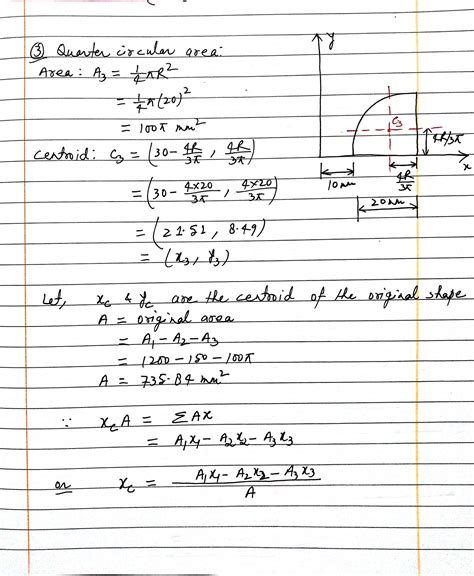 ③ Quarter circular area:
Area: A₃ = 1/4 πR²
= 1/4 π(20)²
= 100π mm²
centroid: C₃ = (30 - 4R/3π, 4R/3π)
= (30 - 4×20/3π, 4×20/3π)
= (21.51, 8.49)
= (x₃, y₃)
y
C₃
4R/3π
x
10mm
4R/3π
20mm
Let, x_c & y_c are the centroid of the original shape
A = original area
= A₁ - A₂ - A₃
= 1200 - 150 - 100π
A = 735.84 mm²
∵ x_c A = ΣAx
= A₁x₁ - A₂x₂ - A₃x₃
or x_c = A₁x₁ - A₂x₂ - A₃x₃ / A